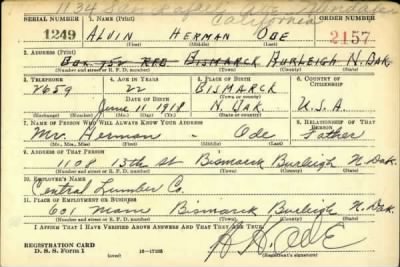 134 So. Ave. Glendale
California
SERIAL NUMBER 1. NAME (Print) ORDER NUMBER
1249 ALVIN HERMAN ODE 2157
(First) (Middle) (Last)
2. ADDRESS (Print)
Box 752 RFD BISMARCK BURLEIGH N. DAK.
(Number and street or R. F. D. number) (Town) (County) (State)
3. TELEPHONE 4. AGE IN YEARS 5. PLACE OF BIRTH 6. COUNTRY OF CITIZENSHIP
2659 22 BISMARCK
DATE OF BIRTH (Town or county)
June 11 1918 N. DAK. U.S.A.
(Mo.) (Day) (Yr.) (State or country)
7. NAME OF PERSON WHO WILL ALWAYS KNOW YOUR ADDRESS 8. RELATIONSHIP OF THAT PERSON
Mr. Herman Ode Father
(Mr., Mrs., Miss) (First) (Middle) (Last)
9. ADDRESS OF THAT PERSON
1108 15th St Bismarck Burleigh N. Dak.
(Number and street or R. F. D. number) (Town) (County) (State)
10. EMPLOYER'S NAME
Central Lumber Co.
11. PLACE OF EMPLOYMENT OR BUSINESS
601 Main Bismarck Burleigh N. Dak.
(Number and street or R. F. D. number) (Town) (County) (State)
I AFFIRM THAT I HAVE VERIFIED ABOVE ANSWERS AND THAT THEY ARE TRUE.
REGISTRATION CARD
D. S. S. Form 1 16—17105 A. H. ODE
(Registrant's signature)